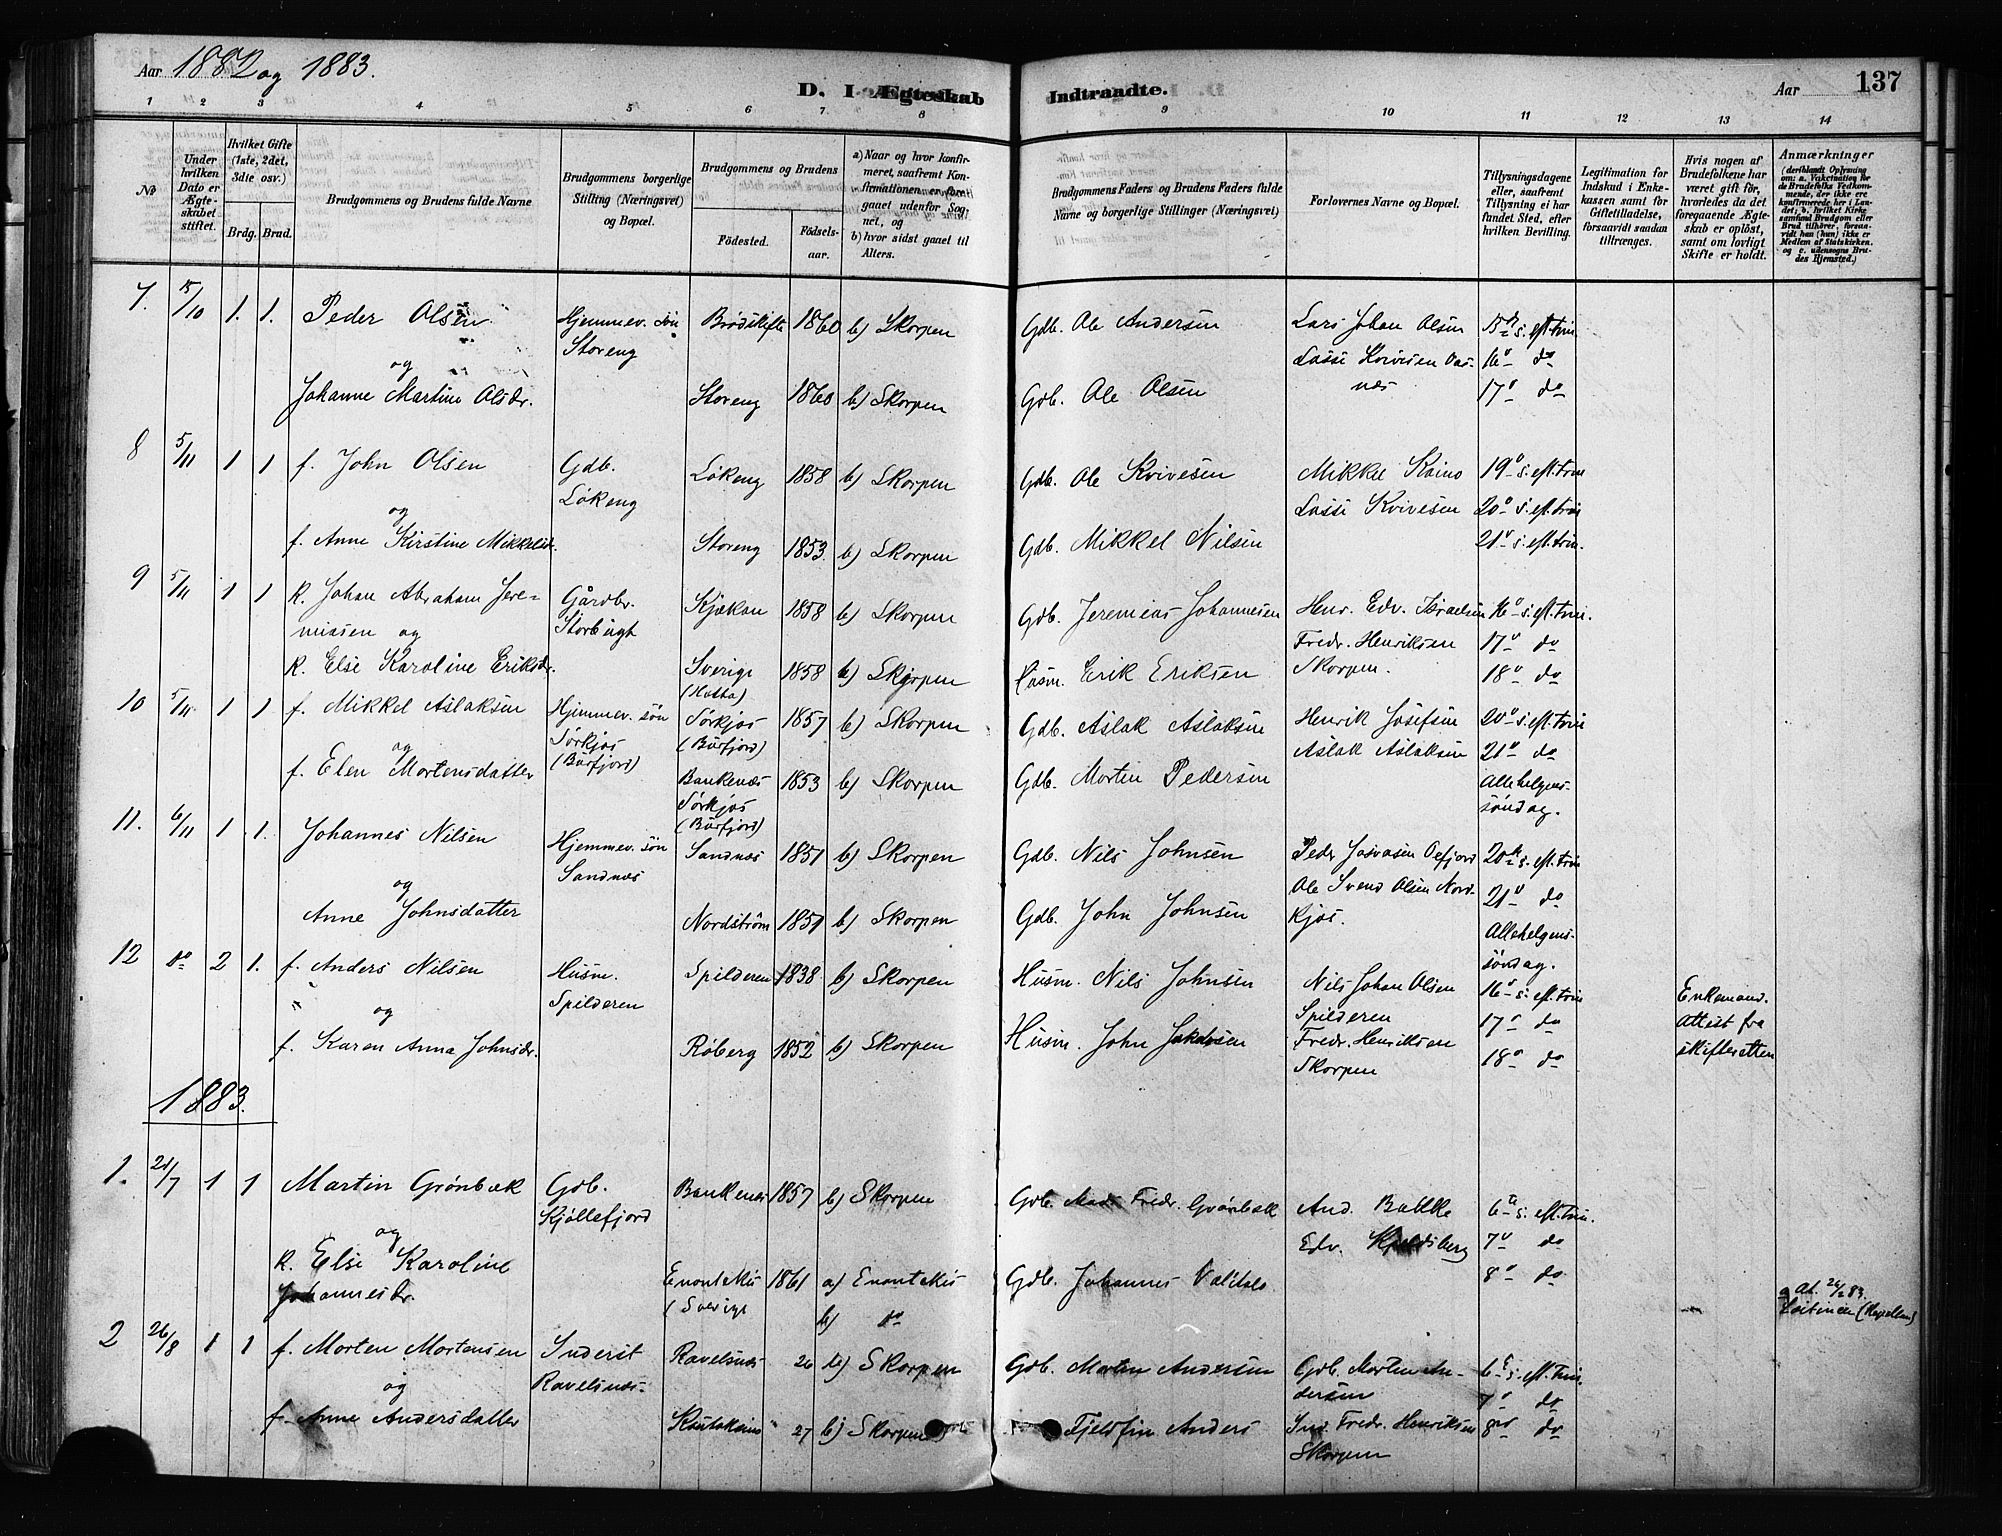 Aar 1882 og 1883.
D. I Ægteskab Indtraadte.
Aar 137
1 2 3 4 5 6 7 8 9 10 11 12 13 14
No
Under hvilken Dato er Ægteskabet stiftet.
Hvilket Gifte (1ste, 2det, 3die osv.)
Brdg. Brud.
Brudgommens og Brudens fulde Navne
Brudgommens borgerlige Stilling (Næringsvei) og Bopæl.
Brudgommens og Brudens
Födested. Födsels-aar.
a) Naar og hvor konfirmeret, saafremt Konfirmationen er foregaaet udenfor Sognet, og
b) hvor sidst gaaet til Alters.
Brudgommens Faders og Brudens Faders fulde Navne og borgerlige Stillinger (Næringsvei)
Forlovernes Navne og Bopæl.
Tillysningsdagene eller, saafremt Tillysning ei har fundet Sted, efter hvilken Bevilling.
Legitimation for Indskud i Enkekassen samt for Giftetilladelse, forsaavidt saadan tiltrænges.
Hvis nogen af Brudefolkene har været gift för, hvorledes da det foregaaende Ægteskab er oplöst, samt om lovligt Skifte er holdt.
Anmærkninger
(deriblandt Oplysning om: a. Vakcination for de Brudefolks Vedkommende, der ikke ere konfirmerede her i Landet; b. hvilket Kirkesamfund Brudgom eller Brud tilhörer, forsaavidt han (hun) ikke er Medlem af Statskirken, og c. udensogns Brudes Hjemsted.)
7. 15/10 1. 1. Peder Olsen Hjemmev. sön Brödskifte 1860 b) Skorpen Gdb. Ole Andersen Lars Johan Olsen 15de s. eft. trin
og Storeng Lasse Kvivesen Oxs- 16o do
Johanne Martine Olsdr. Storeng 1860 b) Skorpen Gdb. Ole Olsen næs 17o do
8 5/11 1 1 f. John Olsen Gdb. Lökeng 1858 b) Skorpen Gdb. Ole Kvivesen Mikkel Kaino 19o s. eft. trin
og Lökeng Lasse Kvivesen 20o s. eft. trin
f. Anne Kirstine Mikkelsdr. Storeng 1853 b) Skorpen Gdb. Mikkel Nilsen 21o s. eft. trin.
9 5/11 1 1 K. Johan Abraham Jere- Gårdbr. Kjækan 1858 b) Skorpen Gdb. Jeremias Johannesen Henr. Edv. Israelsen 16o s. eft. trin.
miasen og Storbugt Fredr. Henriksen 17o do
K. Else Karoline Eriksdr. Sverige 1858 b) Skjorpen Erik Eriksen Skorpen. 18o do
(Hatta)
10 5/11 1 1 f. Mikkel Aslaksen Hjemmev. sön Sörkjos 1857 b) Skorpen Gdb. Aslak Aslaksen Henrik Josefsen 20o s. eft. trin
og Sörkjos (Burfjord) Aslak Aslaksen 21o do
f. Elen Mortensdatter (Burfjord) Bankenæs 1853 b) Skorpen Gdb. Morten Pedersen Allehelgens-
Sörkjos söndag.
(Burfjord)
11. 6/11 1 1. Johannes Nilsen Hjemmev. sön Sandnæs 1851 b) Skorpen Gdb. Nils Johnsen Peder Josvasen Oefjord 20de s. eft. trin
og Sandnæs Ole Svend Olsen Nord- 21o do
Anne Johnsdatter Nordström 1851 b) Skorpen Gdb. John Johnsen kjos. Allehelgens-
söndag.
12 do 2 1. f. Anders Nilsen Husm. Spilderen 1838 b) Skorpen Husm. Nils Johnsen Nils Johan Olsen 16o s. eft. trin Enkemand.
og Spilderen Spilderen 17o do Attest fra
f. Karen Anna Johnsdr. Röberg 1852 b) Skorpen Husm. John Jakobsen Fredr. Henriksen 18o do skifteretten
Skorpen
1883.
1. 21/7 1 1 Martin Grönbæk Gdb. Bankenes 1857 b) Skorpen Gdb. Mads Fredr. Grönbæk And. Bakke 6te s. eft. trin.
og Kjöllefjord Edv. 7o do
K. Else Karoline Enontekis 1861 a) Enontekis Gdb. Johannes 8o do
Johannesdr. (Sverige b) do a At. 26/2 83.
(Kapellan)
2 26/8 1 1 f. Morten Mortensen Inderst Ravelsnæs 26 b) Skorpen Gdb. Morten Andersen Gdb. Morten An- 6te s. eft. trin.
og Ravelsnæs dersen 7o do
f. Anne Andersdatter Kautokeino 27 b) Skorpen Fjeldfin Anders Ind. Fredr. Henriksen 8o do
Skorpen